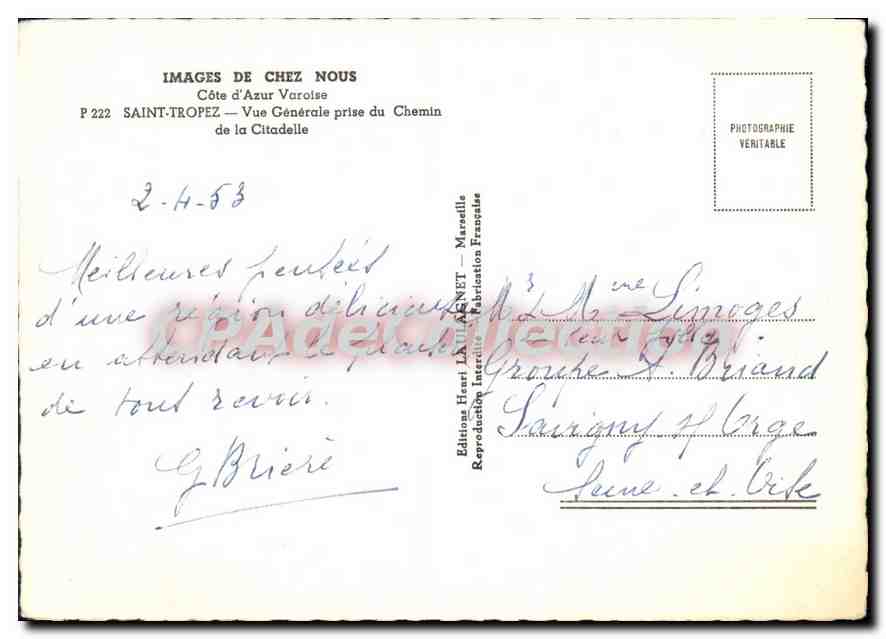 IMAGES DE CHEZ NOUS
Côte d'Azur Varoise
P 222 SAINT-TROPEZ — Vue Générale prise du Chemin
de la Citadelle
PHOTOGRAPHIE
VERITABLE
2-4-53
Meilleures pensées
d'une région délicieuse
en attendant le plaisir
de tout revoir.
G Brière
Editions Henri LAULAGNET — Marseille
Reproduction Interdite - Fabrication Française
Mr & Mme Limoges
et leur
Groupe A. Briand
Savigny s/ Orge
Seine-et-Oise
CPAdeCollection